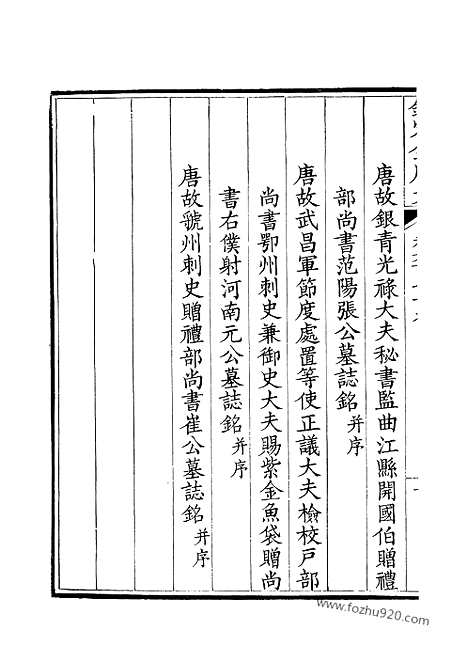 唐故銀青光祿大夫秘書監曲江縣開國伯贈禮
部尚書范陽張公墓誌銘并序
唐故武昌軍節度處置等使正議大夫檢校戸部
尚書鄂州刺史兼御史大夫賜紫金魚袋贈尚
書右僕射河南元公墓誌銘并序
唐故虢州刺史贈禮部尚書崔公墓誌銘并序
www.fozhu920.com